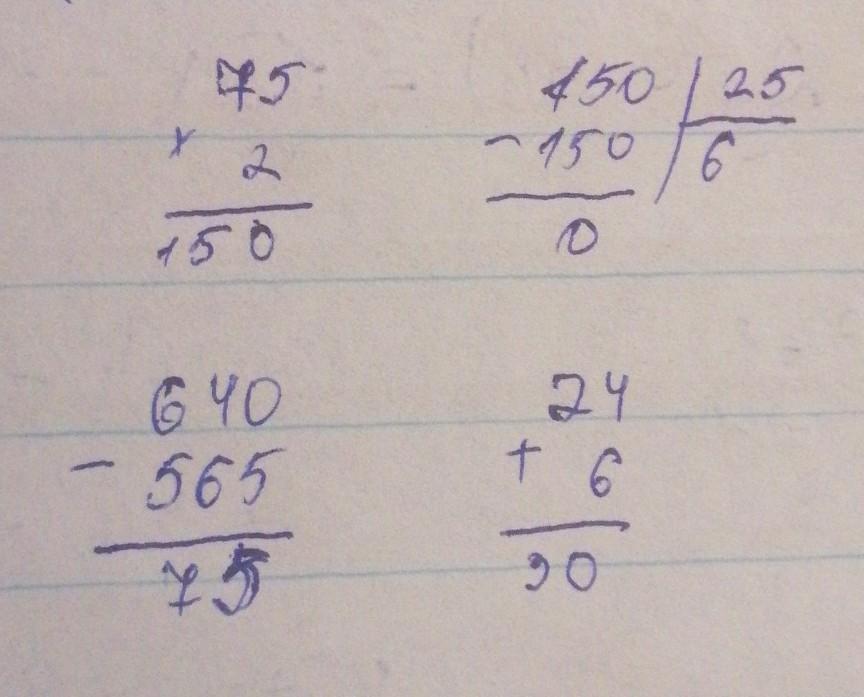 75
× 2
150
150 | 25
- 150 | 6
0
640
- 565
75
24
+ 6
30